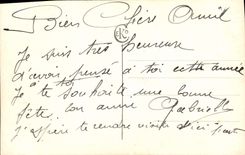 Bien Chère Amie
Je suis très heureuse
d'avoir pensé à toi cette année
Je te souhaite une bonne
fête. ton amie Gabrielle
J'espère te rendre visite d'ici